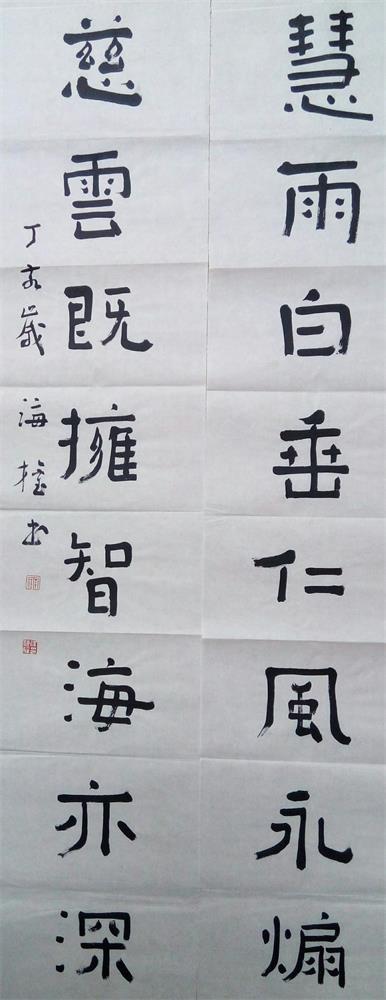 慧雨白垂仁風永煽
慈雲既擁智海亦深
丁亥歲 海 書